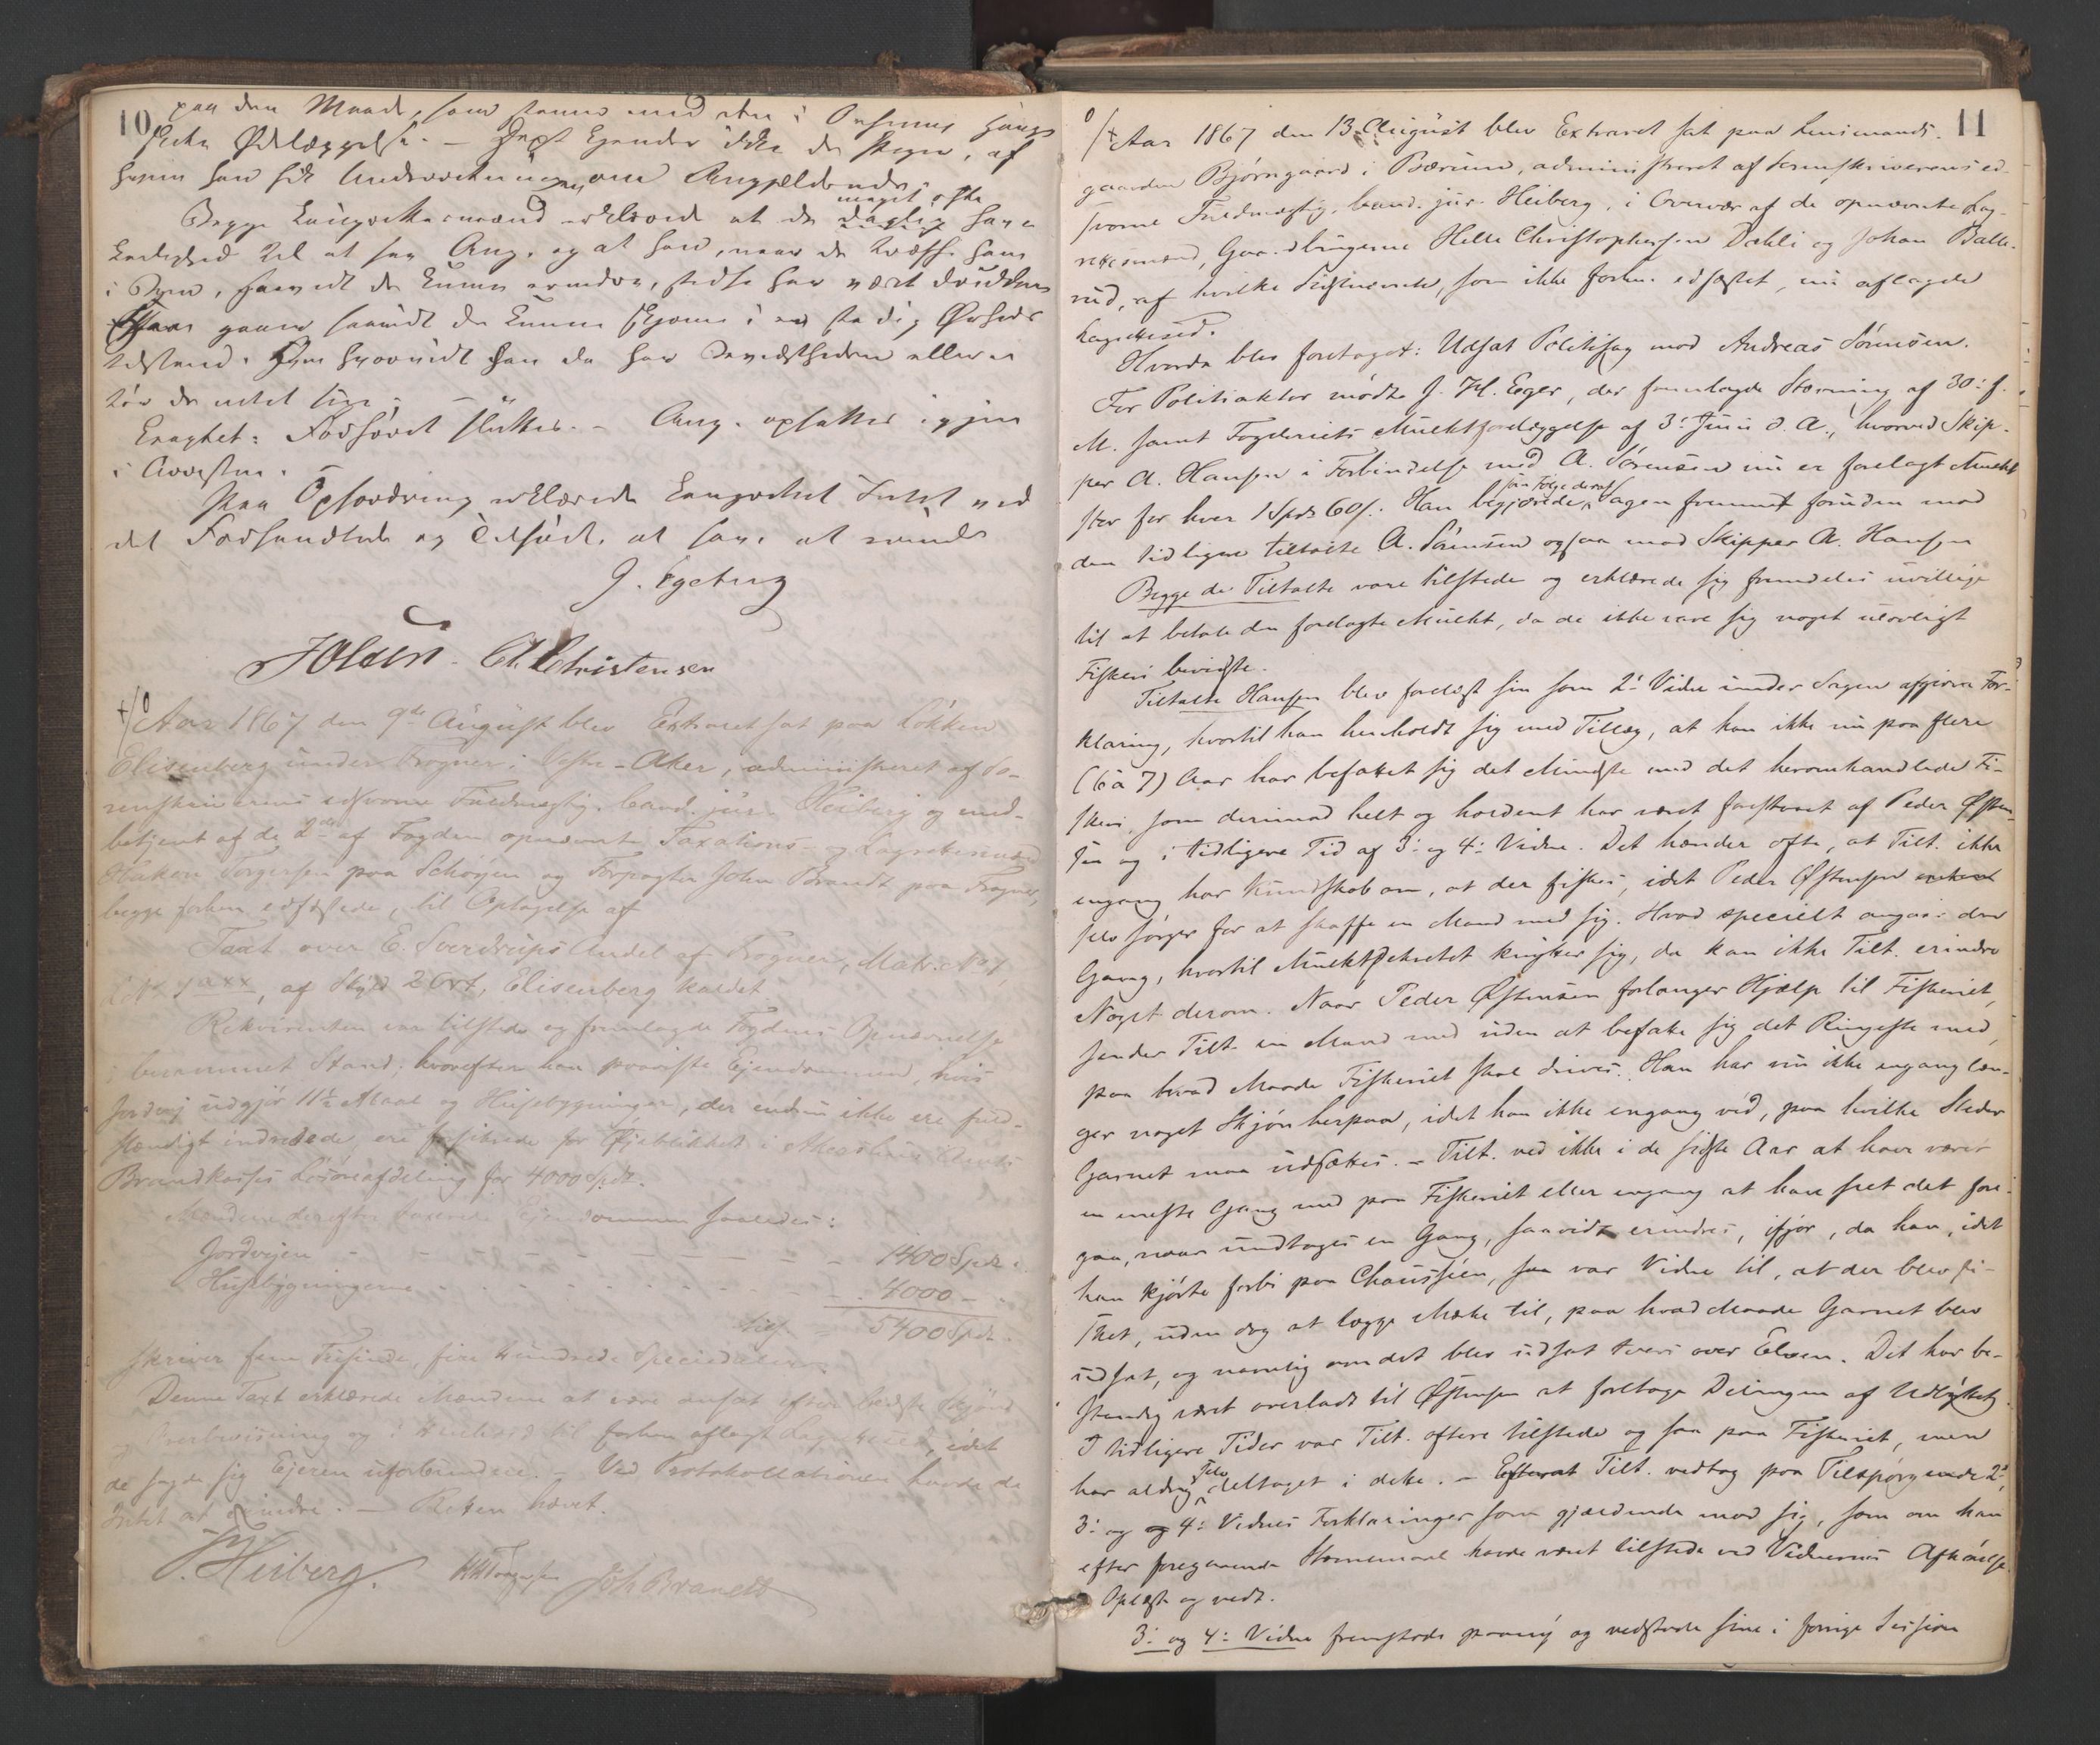 10
paa den Maade, som
Ødelæggelse. — ikke
han fik Underretning om Angjeldende.
meget ofte
Begge erklærede at de daglig have
Leilighed til at see Ang. og at han, naar de træffe ham
i Byen, saavidt de kunne erindre, stedse har vært drukken
gaaer saavidt de kunne skjønne i en stadig Ørheds
tilstand. hvorvidt han da har Bevidstheden eller ei
tør de intet sige.
Eragtet: Forhøret sluttes. — Ang. opsattes igjen
i Arresten.
Paa Opfordring erklærede Intet ved
det Forhandlede og Tilførte at have at erindre
J. Egeberg
J Olsen. A. Christensen
Aar 1867 den 9de August blev Extraret sat paa Løkken
Elisenberg under Frogner i Vestre-Aker, administreret af So-
renskriverens edsvorne Fuldmægtig, Cand. jur. Heiberg og med-
betjent af de 2de af Fogden opnævnte Taxations- og Lagrettesmænd
Haken Torgersen paa Schøyen og Forpagter John Brandt paa Frogner,
begge forhen edfæstede, til Optagelse af
Taxt over E. Sverdrups Andel af Frogner, Matr. No 1,
af Skyld 2 Ort, Elisenberg kaldet.
Rekvirenten var tilstede og fremlagde Fogdens Opnævnelse
i beroenmet Stand, hvorefter han paaviste Ejendommen, hvis
Jordvej udgjør 11½ Maal og Husebygninger, der endnu ikke ere fuld-
stændigt indredede, ere forsikrede for Øjeblikket i Akershus Amts
Brandkasses Løsøreafdeling for 4000 Spdr.
Mændene derefter taxerede Ejendommen saaledes:
Jordvejen - - - - - - 1400 Spdr.
Husebygningerne - - - - - - 4000 —
5400 Spdr.
skriver fem Tusinde, fire Hundrede Speciedaler.
Denne Taxt erklærede Mændene at være ansat efter bedste Skjøn
og Overbevisning og i Henhold til forhen aflagt Lagrettesed, idet
de sagde sig Ejeren uforbundne. — Ved Protokollationen havde de
Intet at erindre. — Retten hævet.
J. Heiberg. HTorgersen Joh Brandt
11
Aar 1867 den 13. August blev Extraret sat paa Lensmands-
gaarden Bjørngaard i Bærum, administreret af Sorenskriverens ed-
svorne Fuldmægtig, Cand. jur. Heiberg, i Overvær af de opnævnte Lag-
rettesmænd, Gaardbrugerne Helle Christophersen Dæhli og Johan Balle-
rud, af hvilke Sidstnævnte, som ikke forhen edfæstet, nu aflagde
Lagrettesed.
Hvorda blev foretaget: Udsat Politisag mod Andreas Sørensen.
For Politiaktor mødte J. H. Eger, der fremlagde Stævning af 30: f.
M. samt Fogderiets Mulktforelæggelse af 3: Juni d. A., hvorved Skip-
per A. Hansen i Forbindelse med A. Sørensen nu er forelagt Mulkt
som Følge deraf
stor for hver 1 Spd 60 ſ. Han begjærede Sagen fremmet foruden mod
den tidligere tiltalte A. Sørensen ogsaa mod Skipper A. Hansen
Begge de Tiltalte vare tilstede og erklærede sig fremdeles uvillige
til at betale den forelagte Mulkt, da de ikke vare sig noget ulovligt
Fiskeri bevidste.
Tiltalte Hansen blev forelæst sin som 2: Vidne under Sagen afgivne For-
klaring, hvortil han henholdt sig med Tillæg, at han ikke nu paa flere
(6 à 7) Aar har befattet sig det Mindste med det heromhandlede Fi-
skeri, som derimod helt og holdent har været forestaaet af Peder Østen-
sen og i tidligere Tid af 3: og 4: Vidne. Det hænder ofte, at Tilt. ikke
engang har Kundskab om, at der fiskes, idet Peder Østensen
selv sørger for at skaffe en Mand med sig. Hvad specielt angaar den
Gang, hvortil Mulktdekretet knytter sig, da kan ikke Tilt. erindre
Noget derom. Naar Peder Østensen forlanger Hjælp til Fiskeriet,
sender Tilt. en Mand med uden at befatte sig det Ringeste med,
paa hvad Maade Fiskeriet skal drives. Han har nu ikke engang læn-
ger noget Skjøn herpaa, idet han ikke engang véd, paa hvilke Steder
Garnet maa udsættes. — Tilt. ved ikke i de sidste Aar at have været
en eneste Gang med paa Fiskeriet eller engang at have seet det fore-
gaa, naar undtages en Gang, saavidt erindres, ifjor, da han, idet
han kjørte forbi paa Chausséen, saa var Vidne til, at der blev fi-
sket, uden dog at lægge Mærke til, paa hvad Maade Garnet blev
udsat, og navnlig om det blev udsat tvers over Elven. Det har be-
standig været overladt til Østensen at foretage Delingen af Udbyttet.
I tidligere Tider var Tilt. oftere tilstede og saa paa Fiskeriet, men
selv
har aldrig deltaget i dette. — Efterat Tilt. vedtog paa Tilspørgende 2:,
3: og og 4: Vidnes Forklaringer som gjældende mod sig, som om han
efter foregaaende Stævnemaal havde været tilstede ved Vidnernes Afhørelse.
Oplæst og vedt.
3: og 4: Vidne fremstode paany og vedstode sine i forrige Session